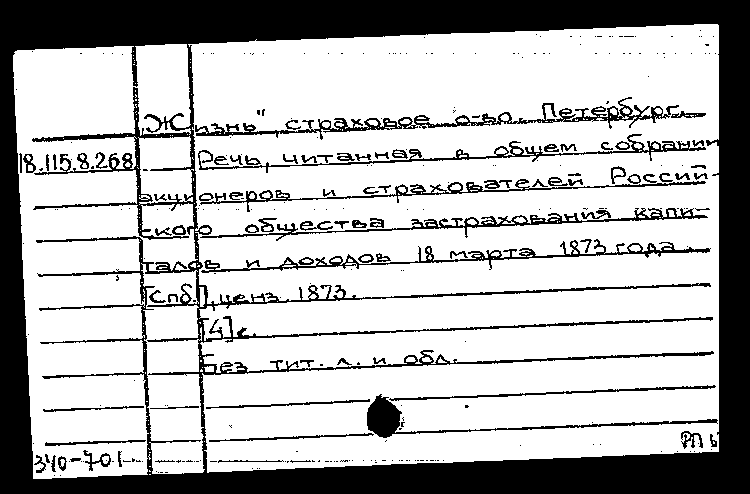 „Жизнь", страховое о-во. Петербург.
18.115.8.268 Речь, читанная в общем собрании
акционеров и страхователей Россий-
ского общества застрахования капи-
талов и доходов 18 марта 1873 года.
[Спб.], ценз. 1873.
[4] с.
Без тит. л. и обл.
340-701
РП